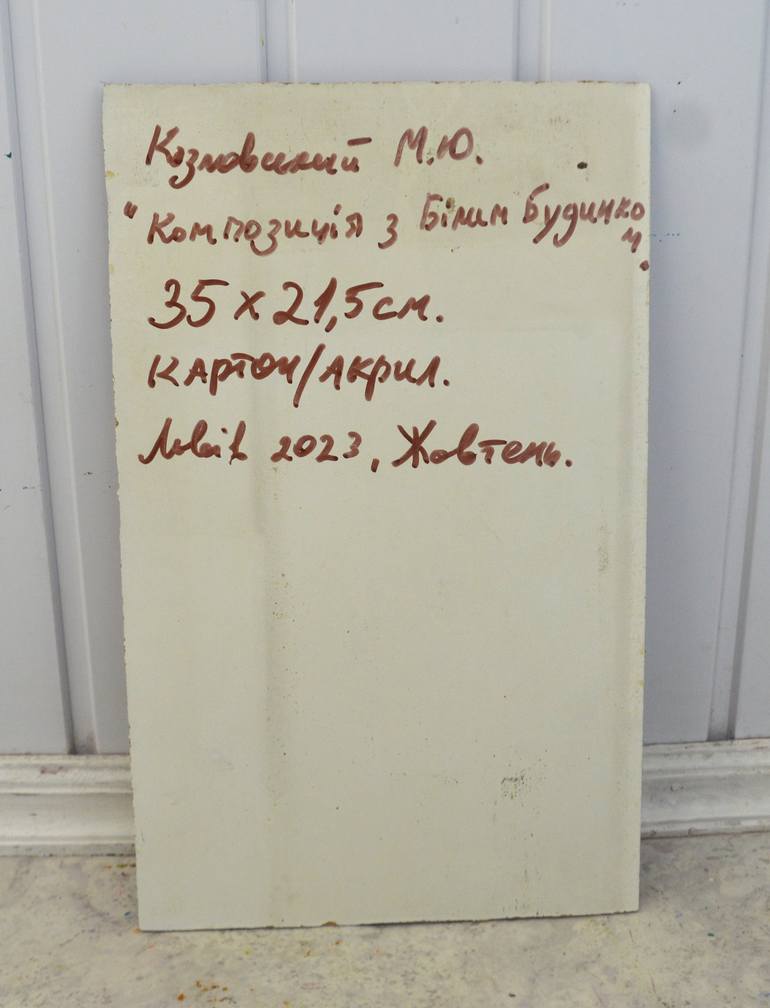 Козловський М.Ю.
"Композиція з Білим Будинко
м.
35 x 21,5см.
Картон/Акрил.
Львів 2023, Жовтень.